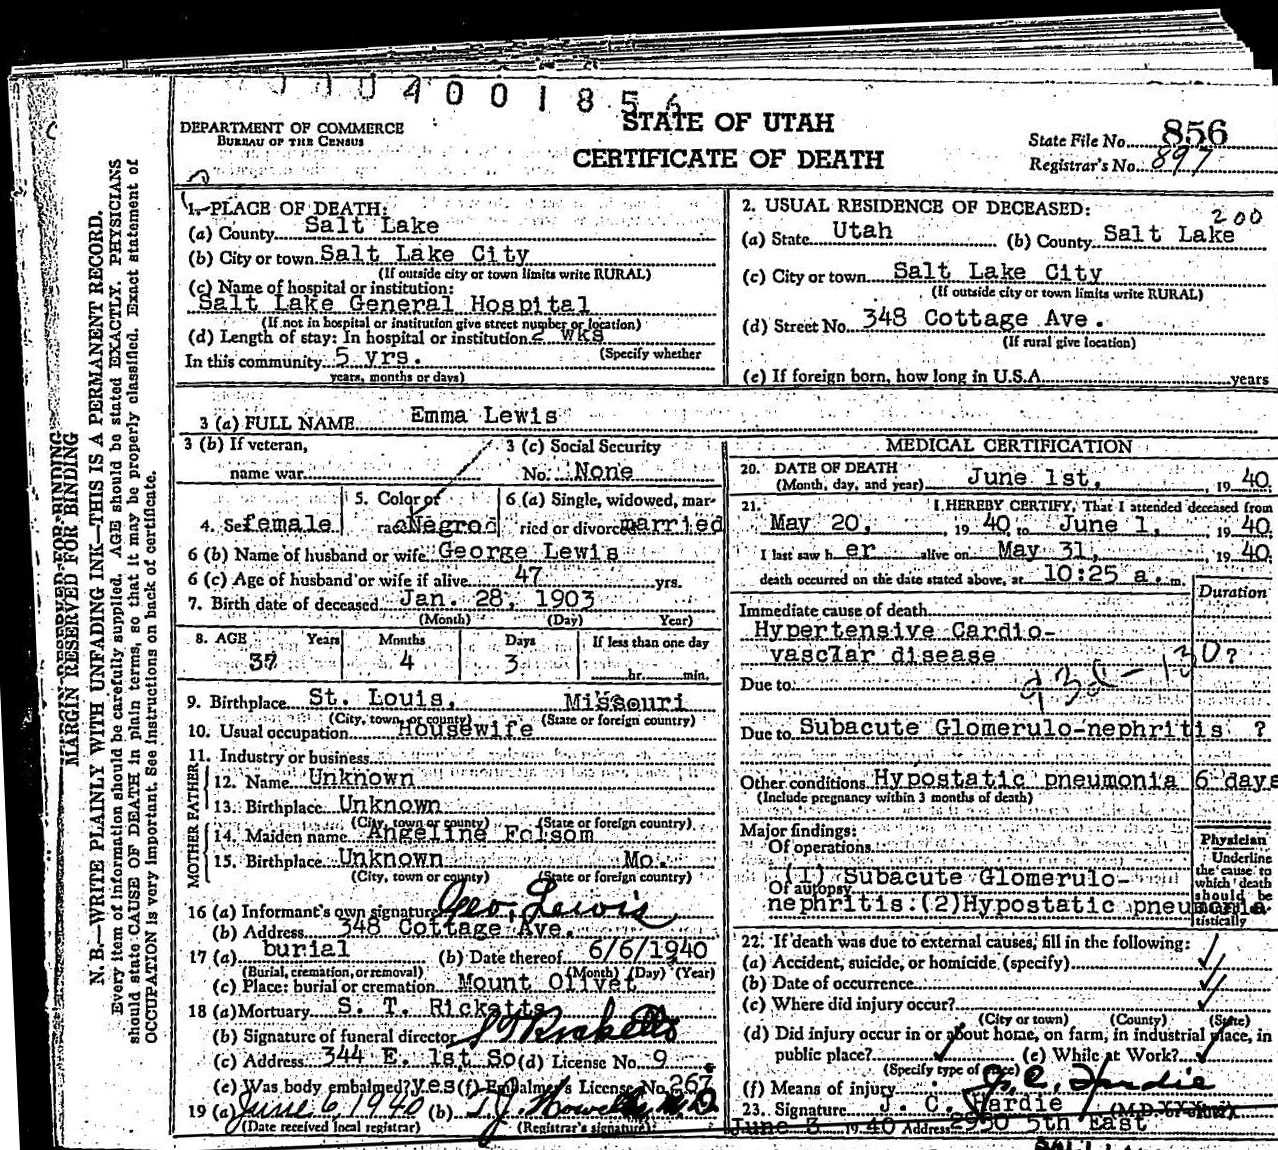 0 4 0 0 1 8 5 6
DEPARTMENT OF COMMERCE
BUREAU OF THE CENSUS
STATE OF UTAH
CERTIFICATE OF DEATH
State File No. 856
Registrar's No. 897
1. PLACE OF DEATH:
(a) County Salt Lake
(b) City or town Salt Lake City
(If outside city or town limits write RURAL)
(c) Name of hospital or institution:
Salt Lake General Hospital
(If not in hospital or institution give street number or location)
(d) Length of stay: In hospital or institution 2 wks
(Specify whether
In this community 5 yrs.
years, months or days)
2. USUAL RESIDENCE OF DECEASED:
200
(a) State Utah (b) County Salt Lake
(c) City or town Salt Lake City
(If outside city or town limits write RURAL)
(d) Street No. 348 Cottage Ave.
(If rural give location)
(e) If foreign born, how long in U.S.A. years
3 (a) FULL NAME Emma Lewis
3 (b) If veteran,
name war
3 (c) Social Security
No. None
4. Sex female
5. Color or
race Negro
6 (a) Single, widowed, mar-
ried or divorced married
6 (b) Name of husband or wife George Lewis
6 (c) Age of husband or wife if alive 47 yrs.
7. Birth date of deceased Jan. 28, 1903
(Month) (Day) Year)
8. AGE Years Months Days If less than one day
37 4 3 hr. min.
9. Birthplace St. Louis, Missouri
(City, town, or county) (State or foreign country)
10. Usual occupation Housewife
11. Industry or business
FATHER
12. Name Unknown
13. Birthplace Unknown
(City, town or county) (State or foreign country)
MOTHER
14. Maiden name Angeline Folsom
15. Birthplace Unknown Mo.
(City, town or county) (State or foreign country)
16 (a) Informant's own signature Geo. Lewis
(b) Address 348 Cottage Ave.
17 (a) burial (b) Date thereof 6/6/1940
(Burial, cremation, or removal) (Month) (Day) (Year)
(c) Place: burial or cremation Mount Olivet
18 (a) Mortuary S. T. Ricketts
(b) Signature of funeral director S T Ricketts
(c) Address 344 E. 1st So (d) License No. 9
(e) Was body embalmed? yes (f) Embalmer's License No. 267
19 (a) June 6, 1940 (b) T J Howells M D
(Date received local registrar) (Registrar's signature)
MEDICAL CERTIFICATION
20. DATE OF DEATH
(Month, day, and year) June 1st, 19 40
21. I HEREBY CERTIFY, That I attended deceased from
May 20, 19 40 to June 1, 19 40
I last saw h er alive on May 31, 19 40
death occurred on the date stated above, at 10:25 a. m.
Duration
Immediate cause of death
Hypertensive Cardio-
vasclar disease ?
Due to
Due to Subacute Glomerulo-nephritis ?
Other conditions Hypostatic pneumonia 6 days
(Include pregnancy within 3 months of death)
Major findings:
Of operations
Of autopsy (1) Subacute Glomerulo-
nephritis: (2) Hypostatic pneumonia
Physician
Underline
the cause to
which death
should be
tistically
22. If death was due to external causes, fill in the following:
(a) Accident, suicide, or homicide (specify)
(b) Date of occurrence
(c) Where did injury occur?
(City or town) (County) (State)
(d) Did injury occur in or about home, on farm, in industrial place, in
public place? (e) While at Work?
(Specify type of place)
(f) Means of injury
J. C. Hardie
23. Signature J. C. Hardie (M.D.
June 3 19 40 Address 2950 5th East
MARGIN RESERVED FOR BINDING
N. B.—WRITE PLAINLY WITH UNFADING INK—THIS IS A PERMANENT RECORD.
Every item of information should be carefully supplied. AGE should be stated EXACTLY. PHYSICIANS
should state CAUSE OF DEATH in plain terms, so that it may be properly classified. Exact statement of
OCCUPATION is very important. See instructions on back of certificate.